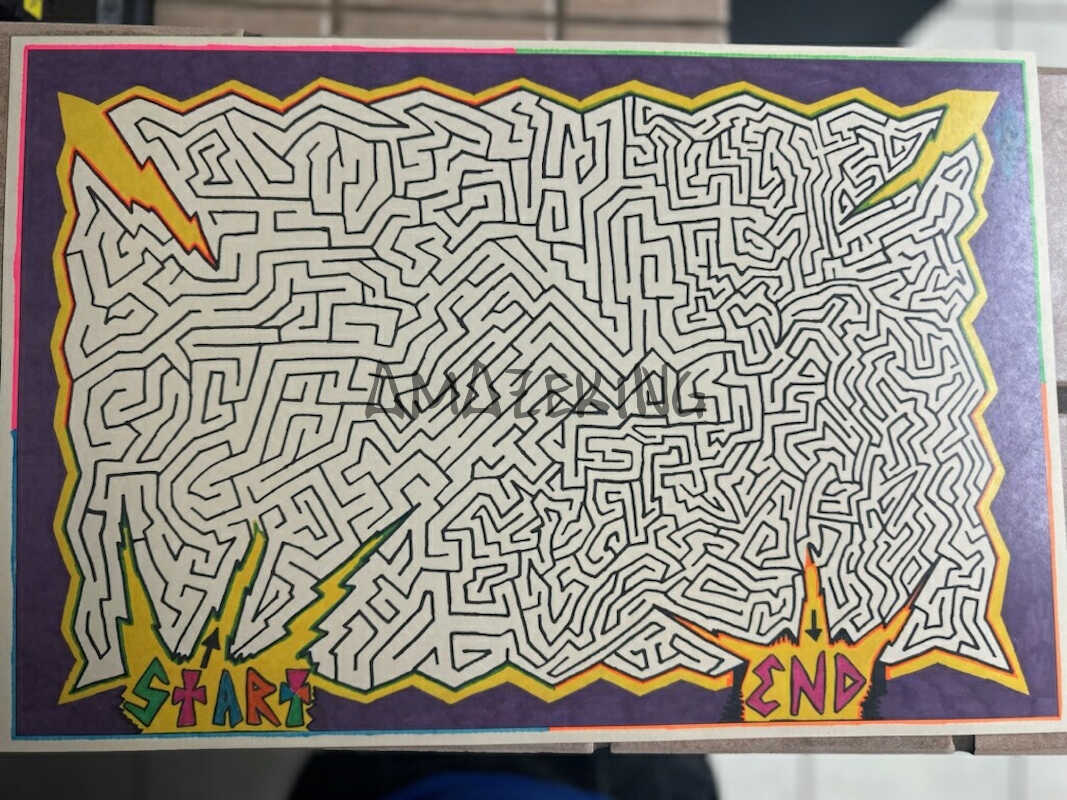 AMAZEKING
START END